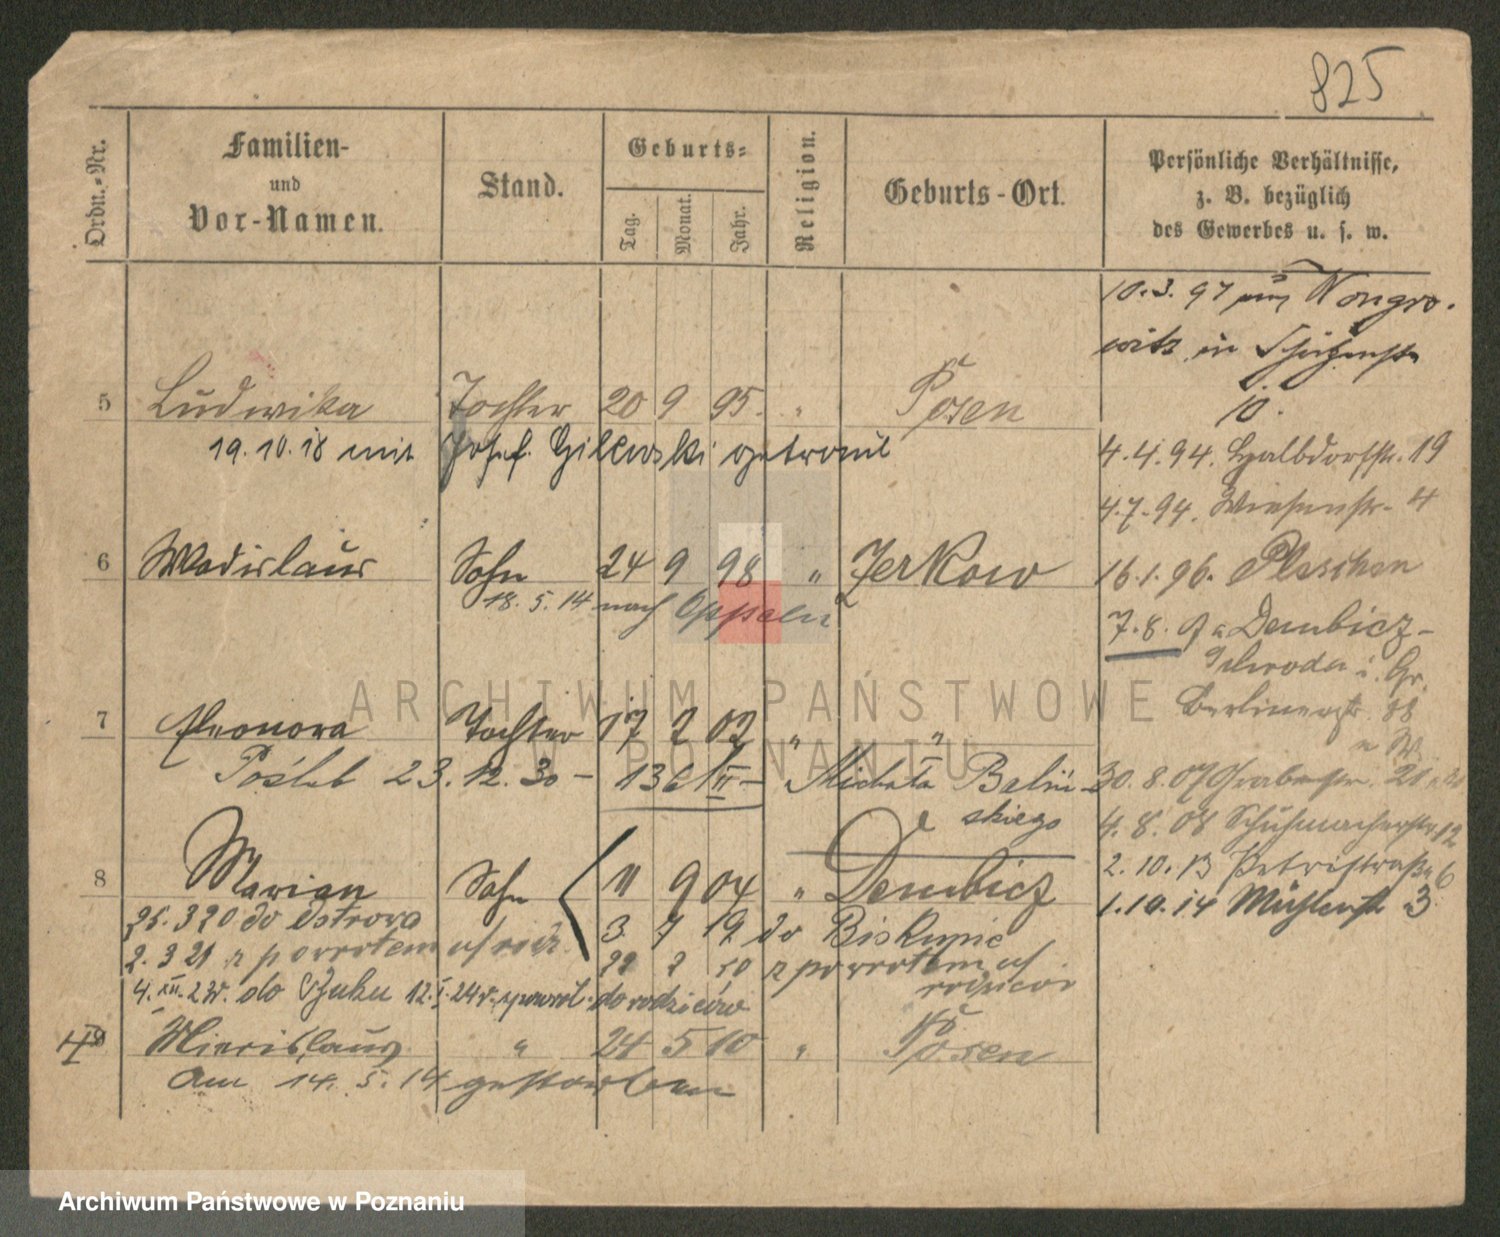 825
Ordn.-Nr.
Familien-
und
Vor-Namen.
Stand.
Geburts-
Tag.
Monat.
Jahr.
Religion.
Geburts-Ort.
Persönliche Verhältnisse,
z. B. bezüglich
des Gewerbes u. s. w.
10.3.97 Wongro-
witz in
10.
5 Ludwika Tochter 20 9 95. " Posen
19.10.18 mit Josef getraut
4.4.94. Halbdorfstr. 19
4.7.94. Wiesenstr. 4
6 Wladislaus Sohn 24 9 98 " Zerkow
18.5.14 nach Oppeln
16.1.96. Pleschen
7.8. Dembicz-
Schroda
Berlinerstr. 88
7 Eleonora Tochter 17 2 02 " "
Poślub 23.12.30 - 136/III - Michała Baliń-
skiego
30.8.07 Grabenstr. 21
4.8.08 Schuhmacherstr. 12
8 Marian Sohn 11 9 04 " Dembicz
2.10.13 Petristraße 6
1.10.14 Mühlenstr 3
25.3 20 do Ostrowa
3 7 19 do Biskupic
2.3 21 z powrotem
22 2 20 z powrotem
rodziców
4.XII.23r. do Buku 12.I.24r. powrót do rodziców
9 " 24 5 10 " Posen
am 14.5.14 gestorben
ARCHIWUM PAŃSTWOWE
W POZNANIU
Archiwum Państwowe w Poznaniu